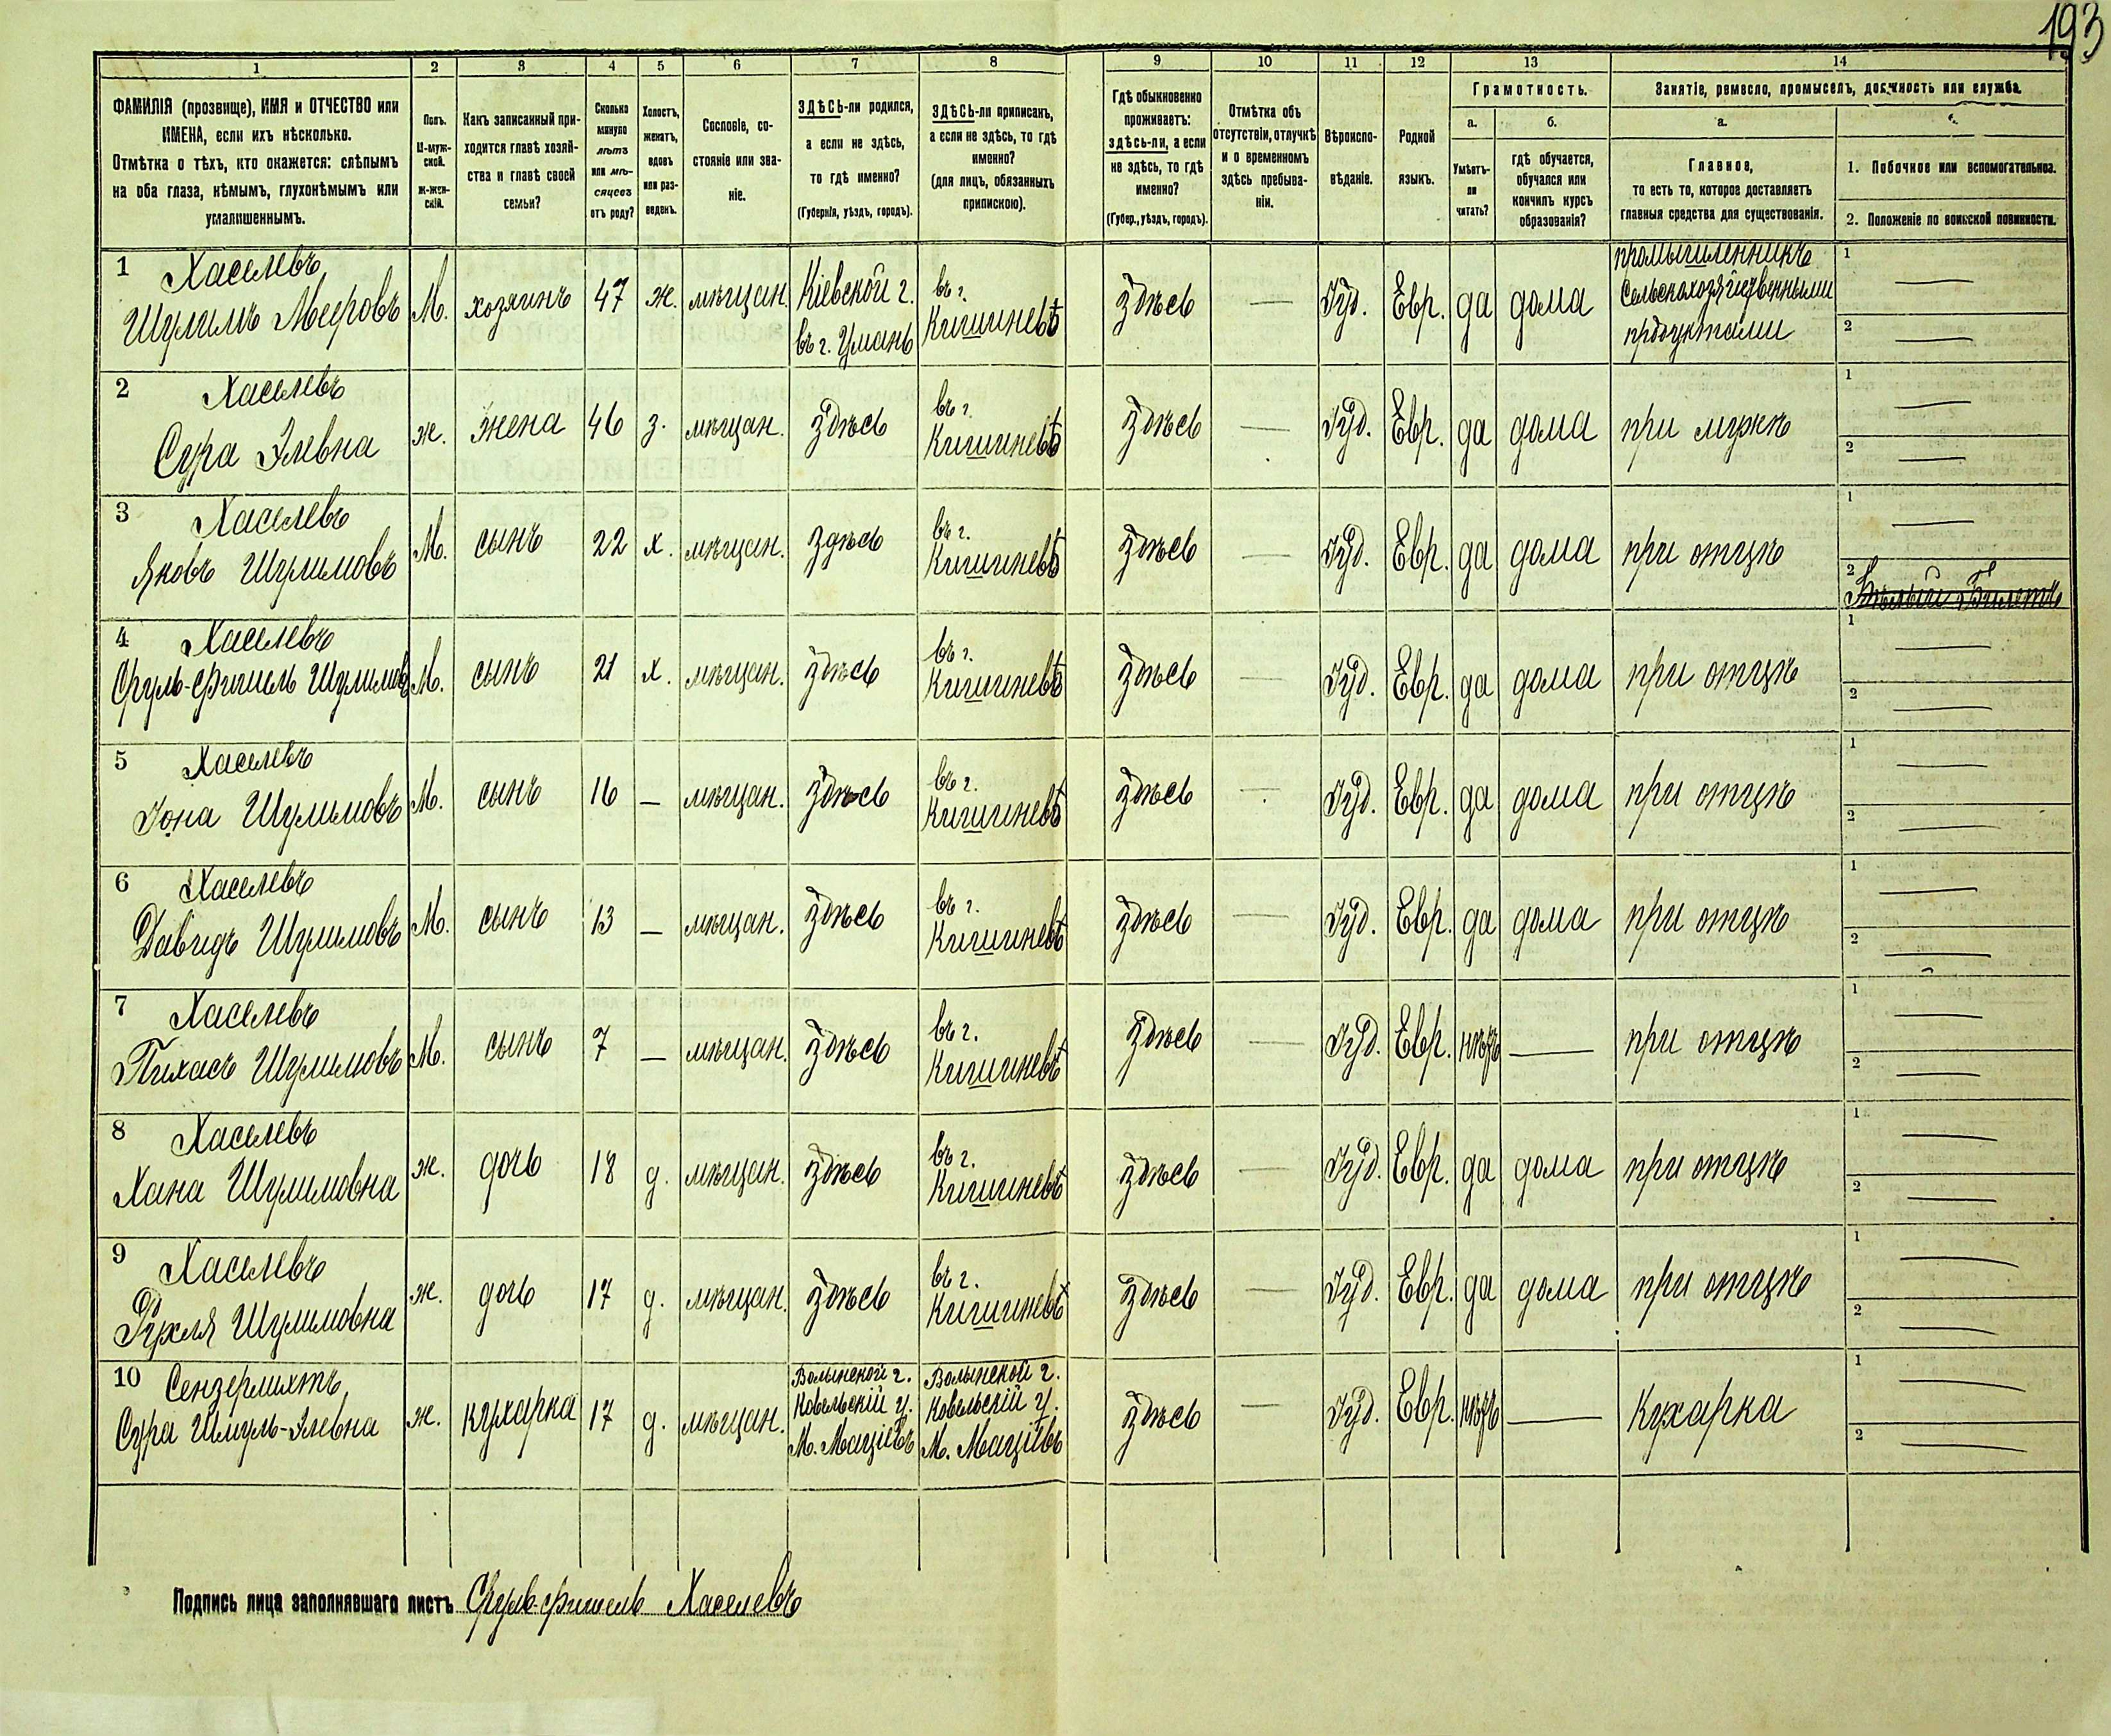 193
1 2 3 4 5 6 7 8 9 10 11 12 13 14
ФАМИЛІЯ (прозвище), ИМЯ и ОТЧЕСТВО или
ИМЕНА, если ихъ нѣсколько.
Отмѣтка о тѣхъ, кто окажется: слѣпымъ
на оба глаза, нѣмымъ, глухонѣмымъ или
умалишеннымъ.
Полъ.
М-муж-
ской.
ж-жен-
скій.
Какъ записанный при-
ходится главѣ хозяй-
ства и главѣ своей
семьи?
Сколько
минуло
лѣтъ
или мѣ-
сяцевъ
отъ роду?
Холостъ,
женатъ,
вдовъ
или раз-
веденъ.
Сословіе, со-
стояніе или зва-
ніе.
ЗДѢСЬ-ли родился,
а если не здѣсь,
то гдѣ именно?
(Губернія, уѣздъ, городъ).
ЗДѢСЬ-ли приписанъ,
а если не здѣсь, то гдѣ
именно?
(для лицъ, обязанныхъ
припискою).
Гдѣ обыкновенно
проживаетъ:
здѣсь-ли, а если
не здѣсь, то гдѣ
именно?
(Губер., уѣздъ, городъ).
Отмѣтка объ
отсутствіи, отлучкѣ
и о временномъ
здѣсь пребыва-
ніи.
Вѣроиспо-
вѣданіе.
Родной
языкъ.
Грамотность.
а. б.
Умѣетъ-
ли
читать?
гдѣ обучается,
обучался или
кончилъ курсъ
образованія?
Занятіе, ремесло, промыселъ, должность или служба.
а.
Главное,
то есть то, которое доставляетъ
главныя средства для существованія.
1. Побочное или вспомогательное.
2. Положеніе по воинской повинности.
1 Хаселевъ
Шулимъ Мееровъ М. хозяинъ 47 ж. мѣщан. Кіевской г. въ г. Умань въ г. Кишиневѣ здѣсь — Іуд. Евр. да дома промышленникъ сельскохозяйственными продуктами 1 — 2 —
2 Хаселевъ
Сура Элевна ж. жена 46 з. мѣщан. здѣсь въ г. Кишиневѣ здѣсь — Іуд. Евр. да дома при мужѣ 1 — 2 —
3 Хаселевъ
Яковъ Шулимовъ М. сынъ 22 х. мѣщан. здѣсь въ г. Кишиневѣ здѣсь — Іуд. Евр. да дома при отцѣ 1 — 2 Бѣлый Билетъ
4 Хаселевъ
Сруль-Фишель Шулимовъ М. сынъ 21 х. мѣщан. здѣсь въ г. Кишиневѣ здѣсь — Іуд. Евр. да дома при отцѣ 1 — 2 —
5 Хаселевъ
Іона Шулимовъ М. сынъ 16 — мѣщан. здѣсь въ г. Кишиневѣ здѣсь — Іуд. Евр. да дома при отцѣ 1 — 2 —
6 Хаселевъ
Давидъ Шулимовъ М. сынъ 13 — мѣщан. здѣсь въ г. Кишиневѣ здѣсь — Іуд. Евр. да дома при отцѣ 1 — 2 —
7 Хаселевъ
Пихасъ Шулимовъ М. сынъ 7 — мѣщан. здѣсь въ г. Кишиневѣ здѣсь — Іуд. Евр. нѣтъ — при отцѣ 1 — 2 —
8 Хаселевъ
Хана Шулимовна ж. дочь 18 д. мѣщан. здѣсь въ г. Кишиневѣ здѣсь — Іуд. Евр. да дома при отцѣ 1 — 2 —
9 Хаселевъ
Рухля Шулимовна ж. дочь 17 д. мѣщан. здѣсь въ г. Кишиневѣ здѣсь — Іуд. Евр. да дома при отцѣ 1 — 2 —
10 Сензерлихтъ
Сура Шмуль-Элевна ж. кухарка 17 д. мѣщан. Волынской г. Ковельскій у. М. Маціевъ Волынской г. Ковельскій у. М. Маціевъ здѣсь — Іуд. Евр. нѣтъ — Кухарка 1 — 2 —
Подпись лица заполнявшаго листъ Сруль-Фишель Хаселевъ